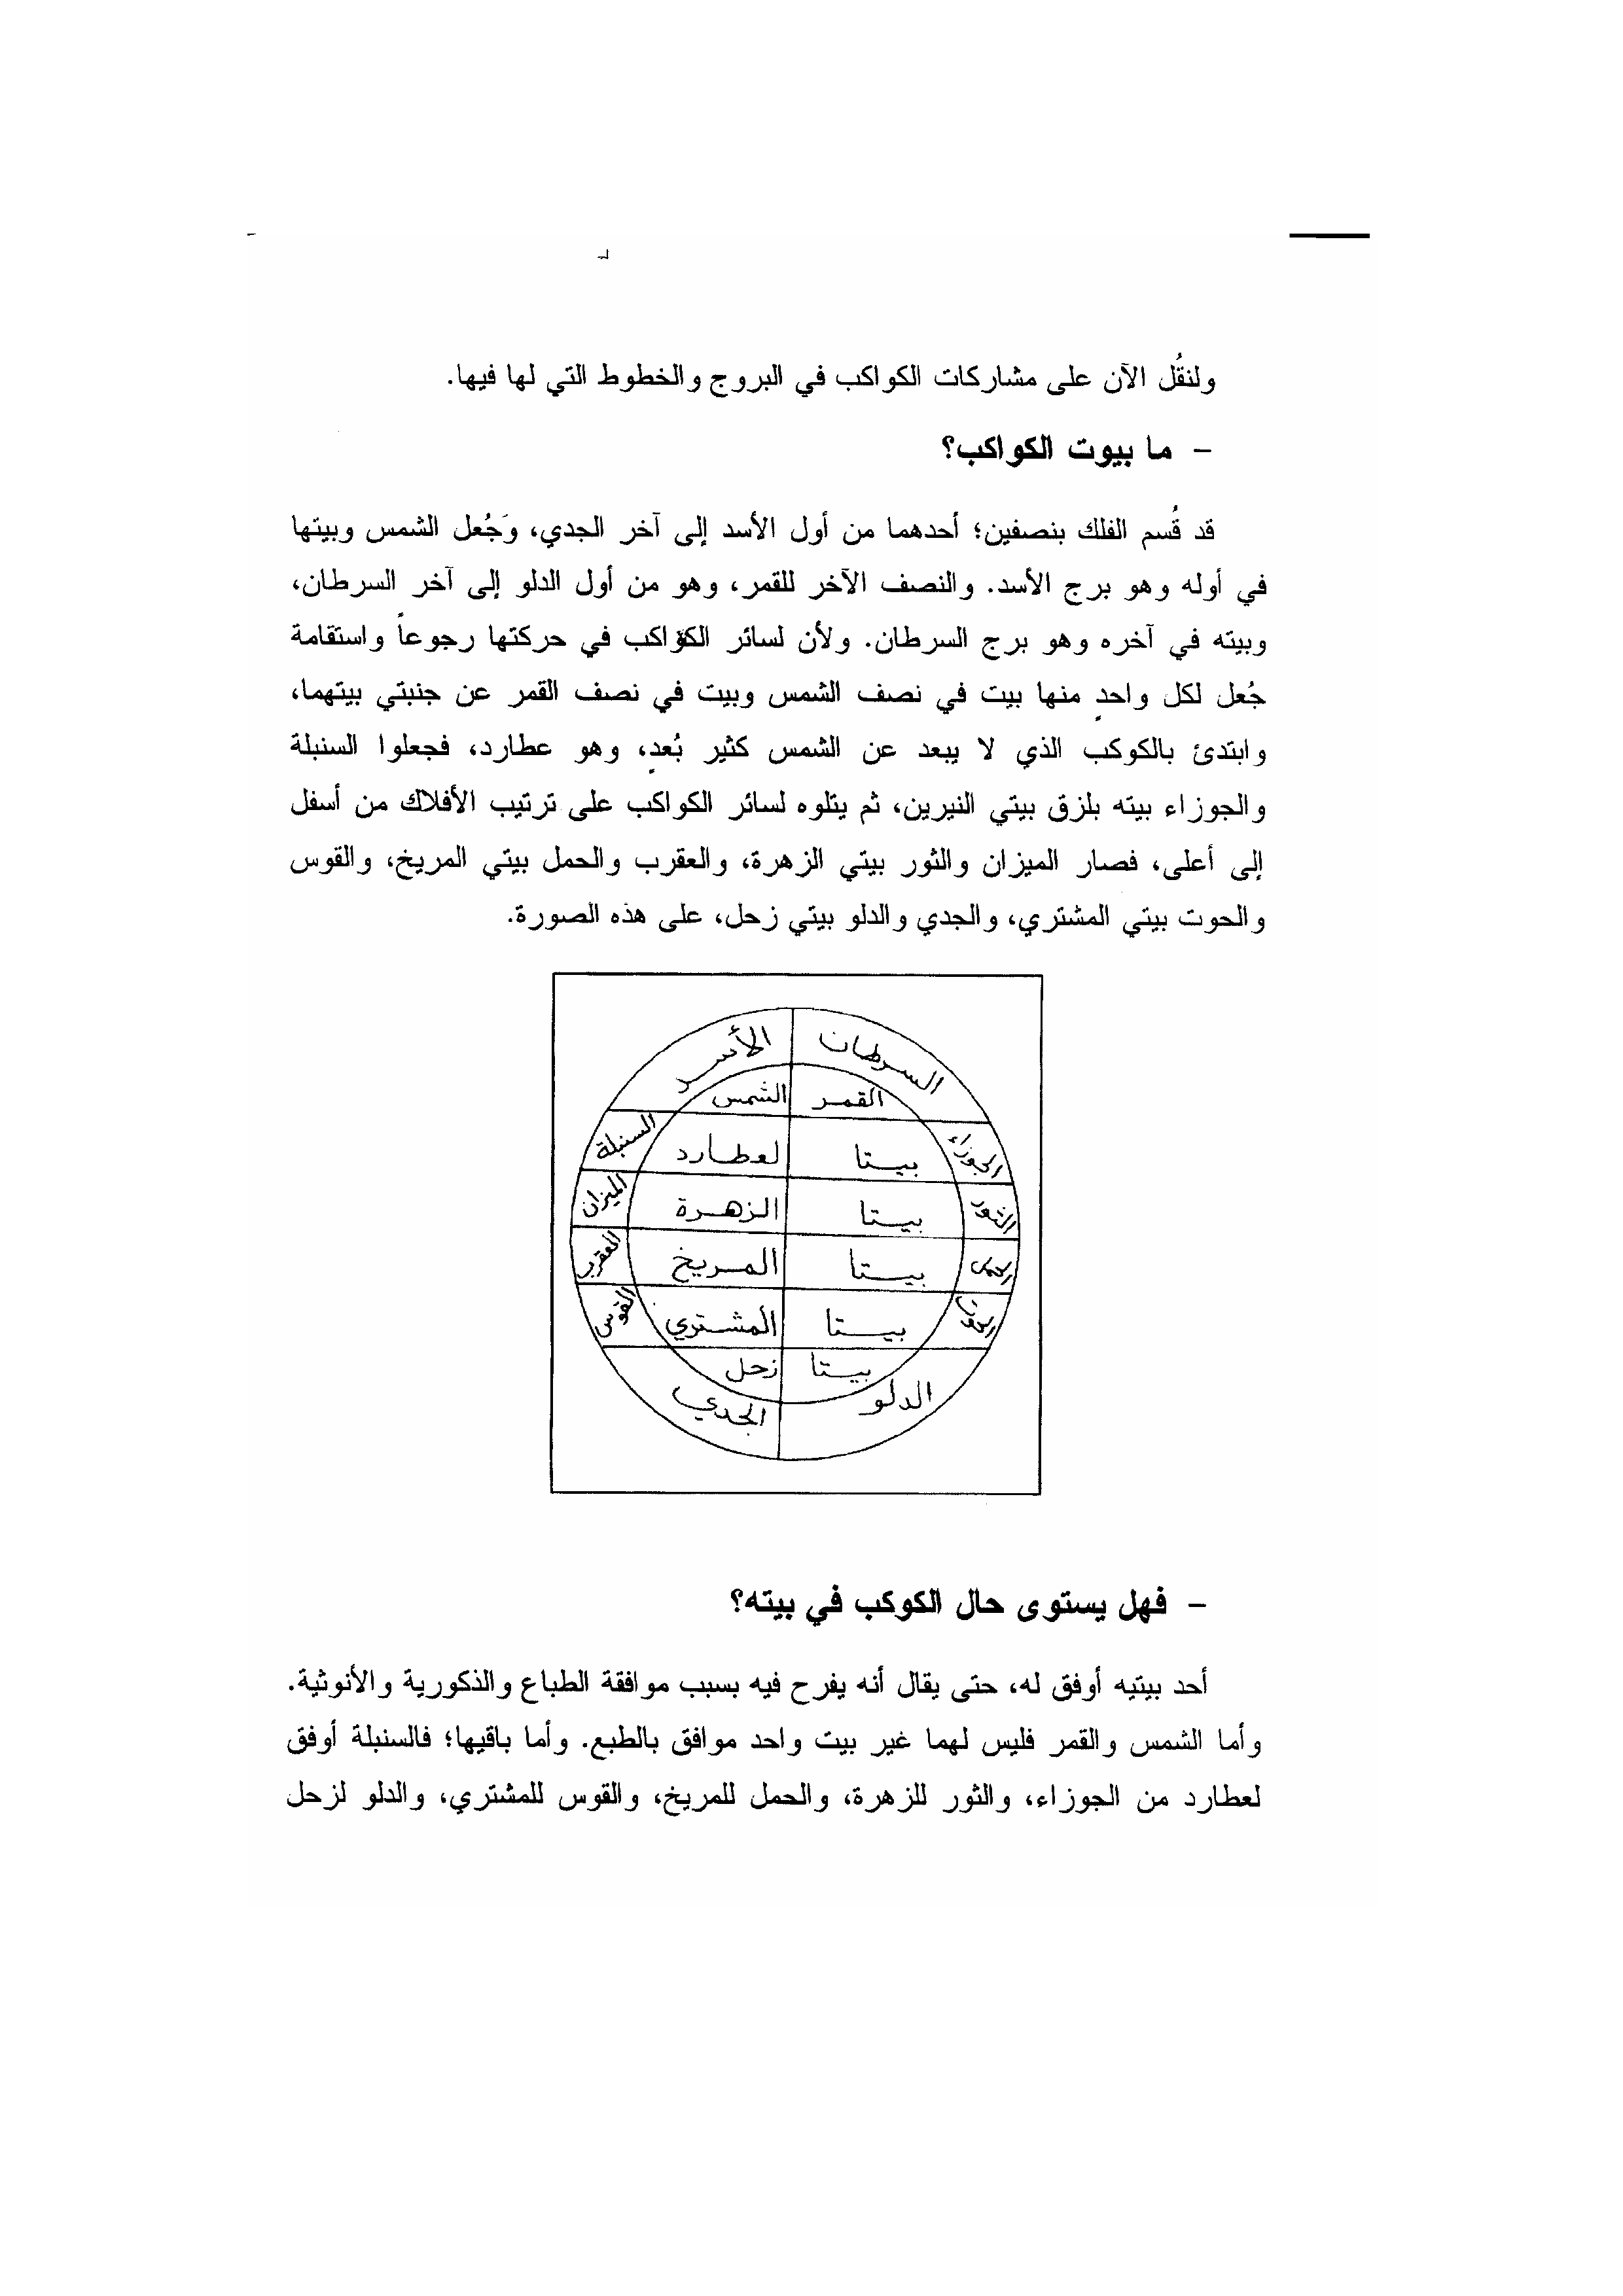 ولنقُل الآن على مشاركات الكواكب في البروج والخطوط التي لها فيها.
– ما بيوت الكواكب؟
قد قُسم الفلك بنصفين؛ أحدهما من أول الأسد إلى آخر الجدي، وَجُعل الشمس وبيتها
في أوله وهو برج الأسد. والنصف الآخر للقمر، وهو من أول الدلو إلى آخر السرطان،
وبيته في آخره وهو برج السرطان. ولأن لسائر الكواكب في حركتها رجوعاً واستقامة
جُعل لكل واحدٍ منها بيت في نصف الشمس وبيت في نصف القمر عن جنبتي بيتهما،
وابتدئ بالكوكب الذي لا يبعد عن الشمس كثير بُعدٍ، وهو عطارد، فجعلوا السنبلة
والجوزاء بيته بلزق بيتي النيرين، ثم يتلوه لسائر الكواكب على ترتيب الأفلاك من أسفل
إلى أعلى، فصار الميزان والثور بيتي الزهرة، والعقرب والحمل بيتي المريخ، والقوس
والحوت بيتي المشتري، والجدي والدلو بيتي زحل، على هذه الصورة.
السرطان الأسد
القمر الشمس
الجوزاء بيتا لعطارد السنبلة
الثور بيتا الزهرة الميزان
الحمل بيتا المريخ العقرب
الحوت بيتا المشتري القوس
بيتا زحل
الدلو الجدي
– فهل يستوى حال الكوكب في بيته؟
أحد بيتيه أوفق له، حتى يقال أنه يفرح فيه بسبب موافقة الطباع والذكورية والأنوثية.
وأما الشمس والقمر فليس لهما غير بيت واحد موافق بالطبع. وأما باقيها؛ فالسنبلة أوفق
لعطارد من الجوزاء، والثور للزهرة، والحمل للمريخ، والقوس للمشتري، والدلو لزحل